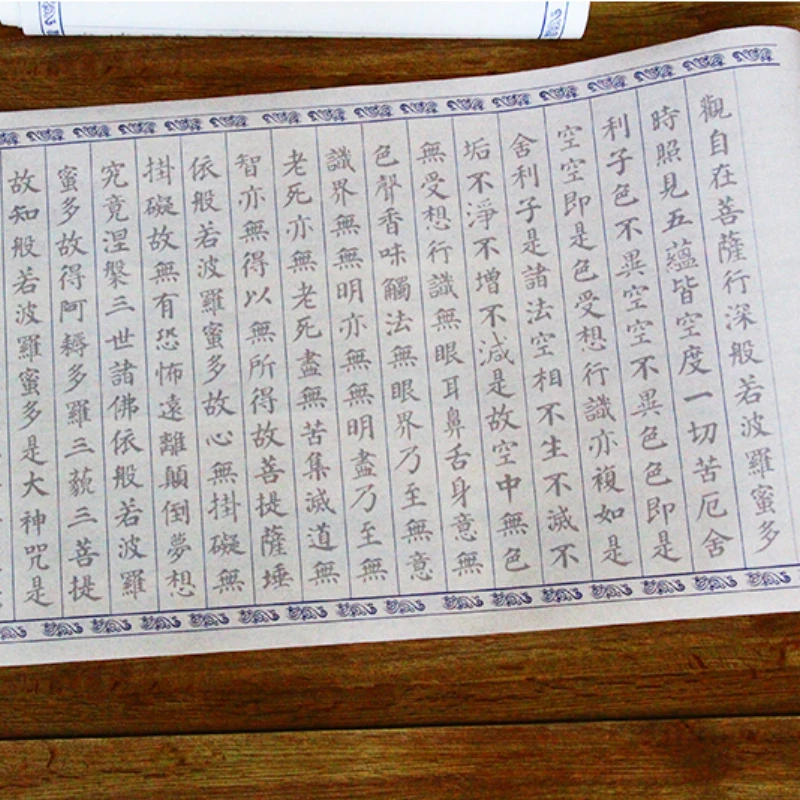 觀自在菩薩行深般若波羅蜜多
時照見五蘊皆空度一切苦厄舍
利子色不異空空不異色色即是
空空即是色受想行識亦複如是
舍利子是諸法空相不生不滅不
垢不淨不增不減是故空中無色
無受想行識無眼耳鼻舌身意無
色聲香味觸法無眼界乃至無意
識界無無明亦無無明盡乃至無
老死亦無老死盡無苦集滅道無
智亦無得以無所得故菩提薩埵
依般若波羅蜜多故心無掛礙無
掛礙故無有恐怖遠離顛倒夢想
究竟涅槃三世諸佛依般若波羅
蜜多故得阿耨多羅三藐三菩提
故知般若波羅蜜多是大神咒是